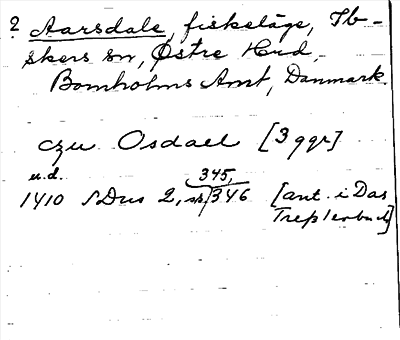 ? Aarsdale, fiskeläge, Ib-
skers sn, Østre Hrd,
Bornholms Amt, Danmark.
czu Osdael [3 ggr]
u.d. 345,
1410 SDns 2, s. 346 [ant. i Das
Tresslerbuch]